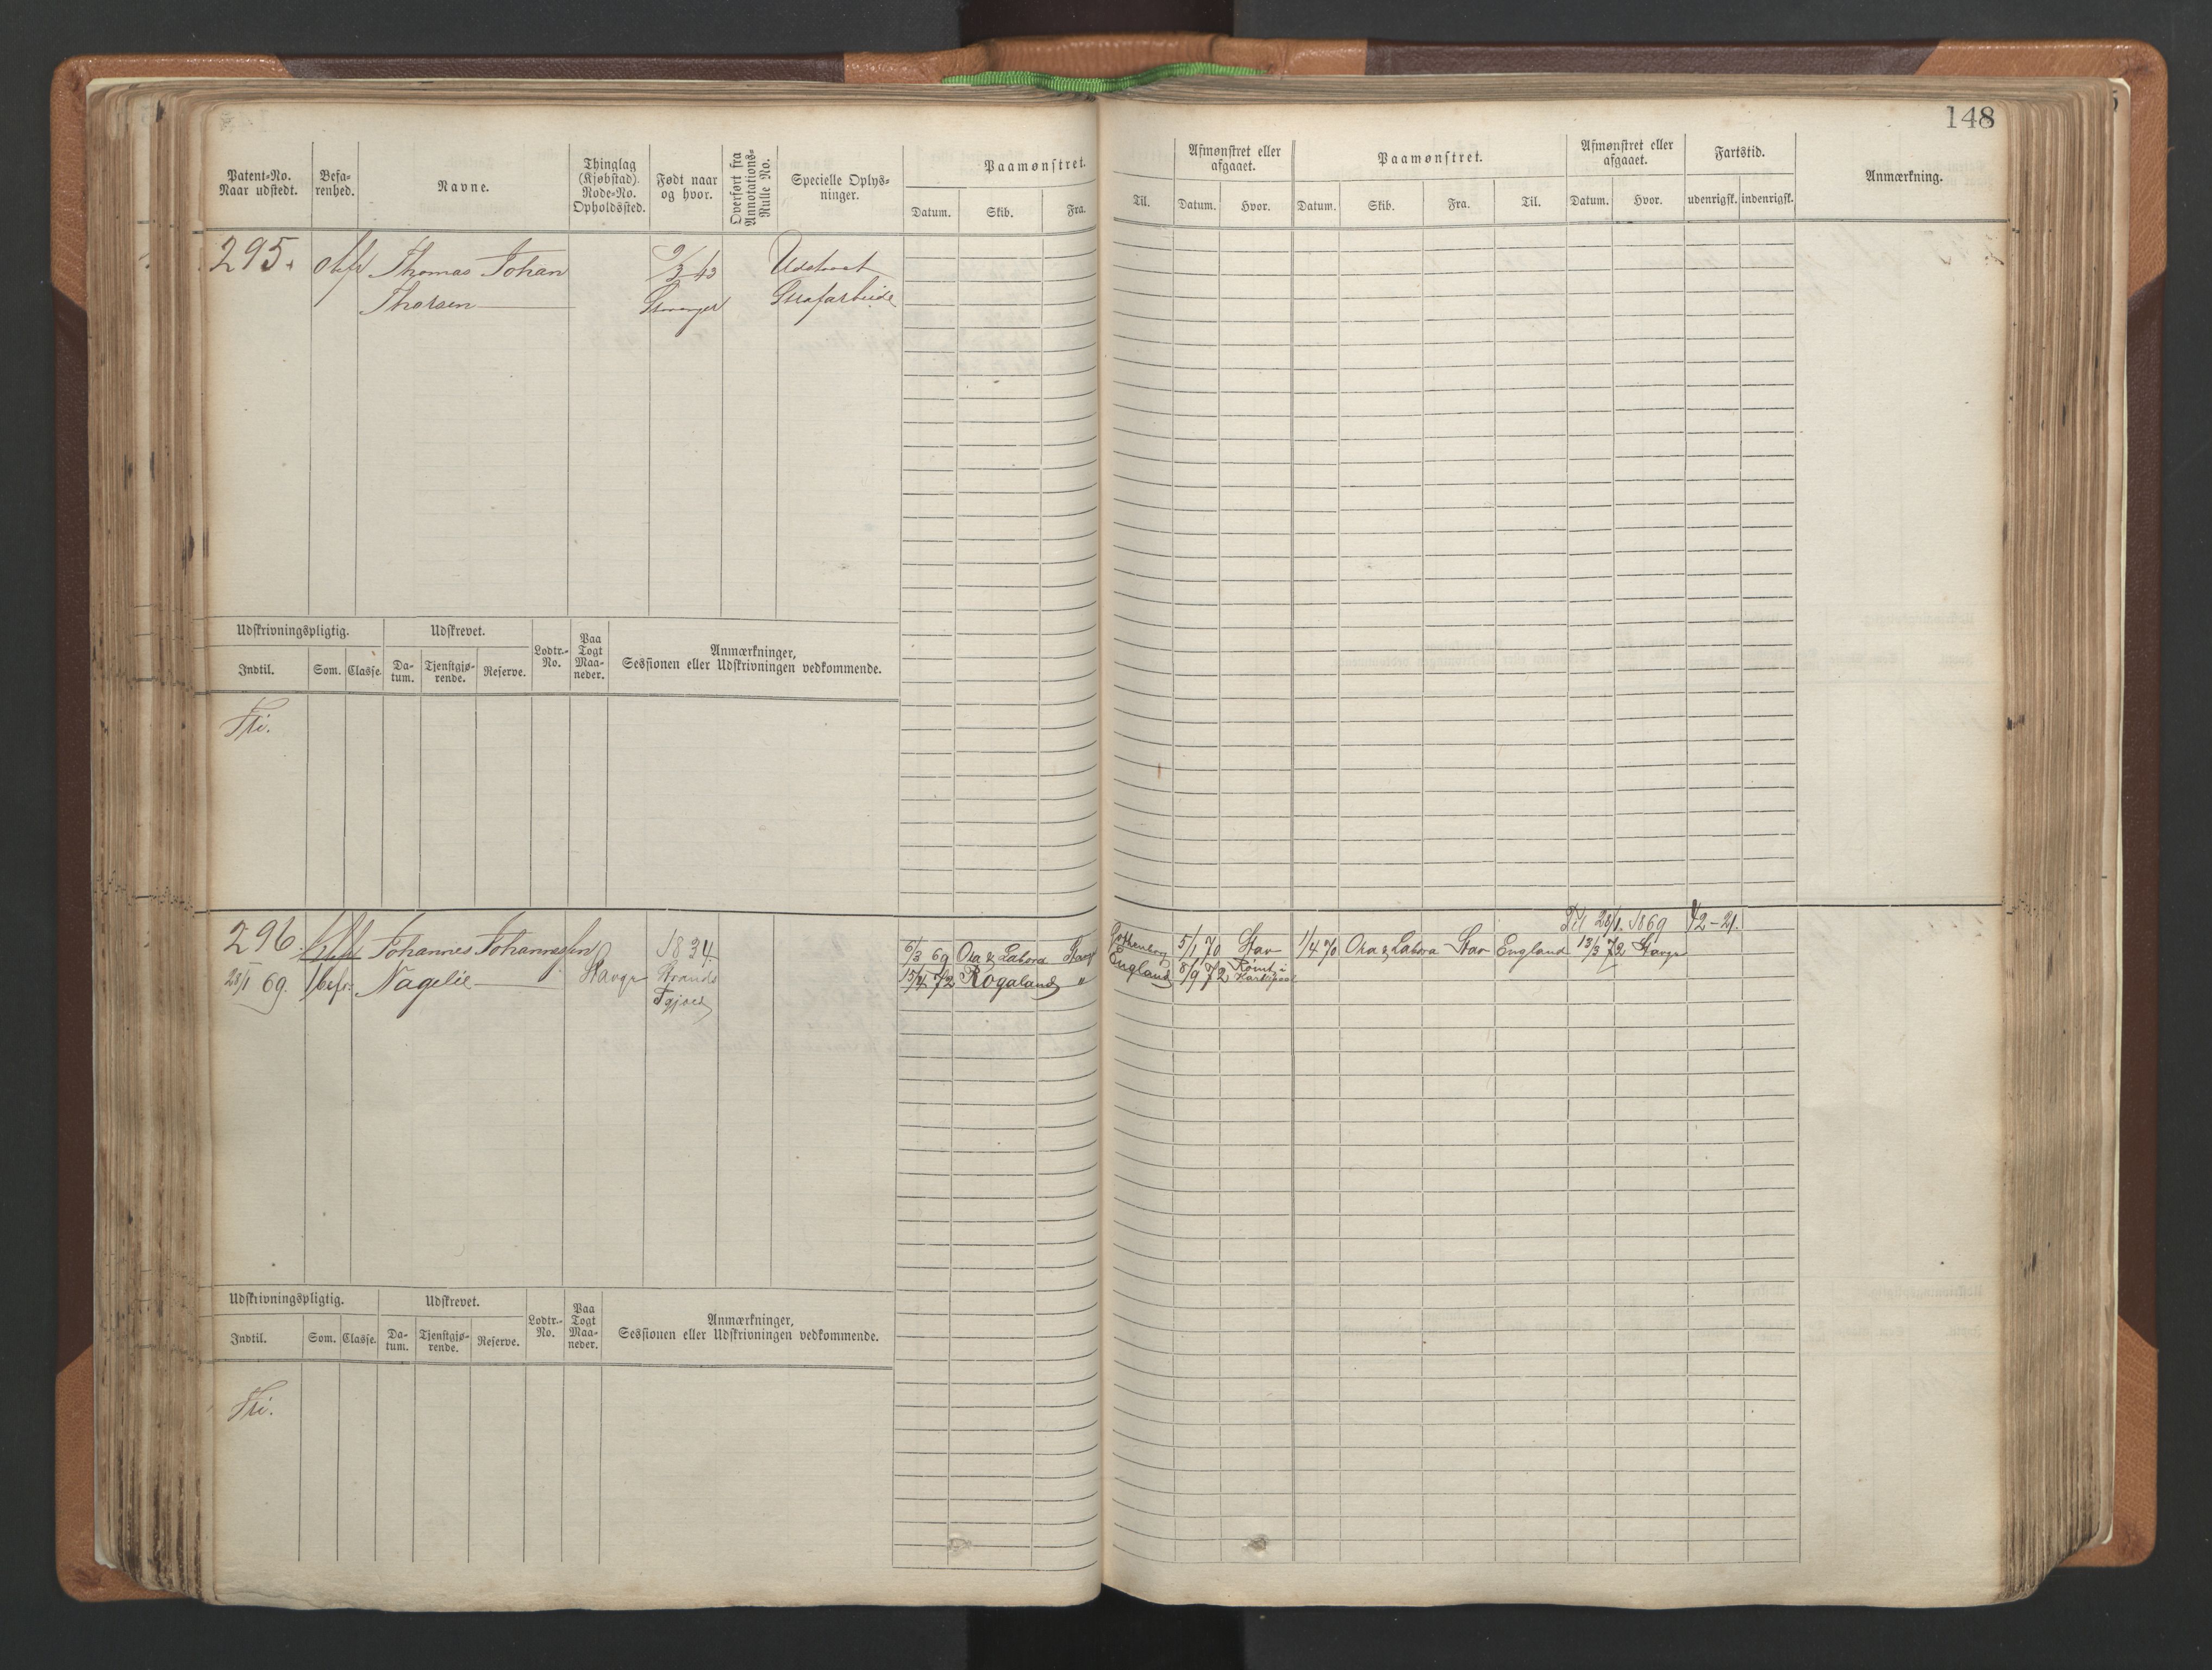 148
Patent-No.
Naar udstedt.
Befa-
renhed.
Navne.
Thinglag
(Kjøbstad).
Rode-No.
Opholdssted.
Født naar
og hvor.
Overført fra
Annotations-
Rulle No.
Specielle Oplys-
ninger.
Paamønstret.
Datum.
Skib.
Fra.
Til.
Afmønstret eller
afgaaet.
Datum.
Hvor.
Paamønstret.
Datum.
Skib.
Fra.
Til.
Afmønstret eller
afgaaet.
Datum.
Hvor.
Fartstid.
udenrigsk.
indenrigsk.
Anmærkning.
295.
Thomas Johan
Thorsen
9/3 43
Stavanger
Udstaaet
Strafarbeide
Udskrivningspligtig.
Indtil.
Som.
Classe.
Udskrevet.
Da-
tum.
Tjenstgjø-
rende.
Reserve.
Lodtr.-
No.
Paa
Togt
Maa-
neder.
Anmærkninger,
Sessionen eller Udskrivningen vedkommende.
Fri.
296.
28/1 69.
1 befr:
Johannes Johannessen
Nagelie
Stavgr
1834.
Strands
Til 28/1. 1869 12-21.
6/3 69 Ora & Labora Stavgr Gothenborg 5/1 70 Stav 1/4 70 Ora & Labora Stav England 13/3 72 Stavgr
15/4 72 Rogaland " England 8/9 72 Rømt i
Udskrivningspligtig.
Indtil.
Som.
Classe.
Udskrevet.
Da-
tum.
Tjenstgjø-
rende.
Reserve.
Lodtr.-
No.
Paa
Togt
Maa-
neder.
Anmærkninger,
Sessionen eller Udskrivningen vedkommende.
Fri.